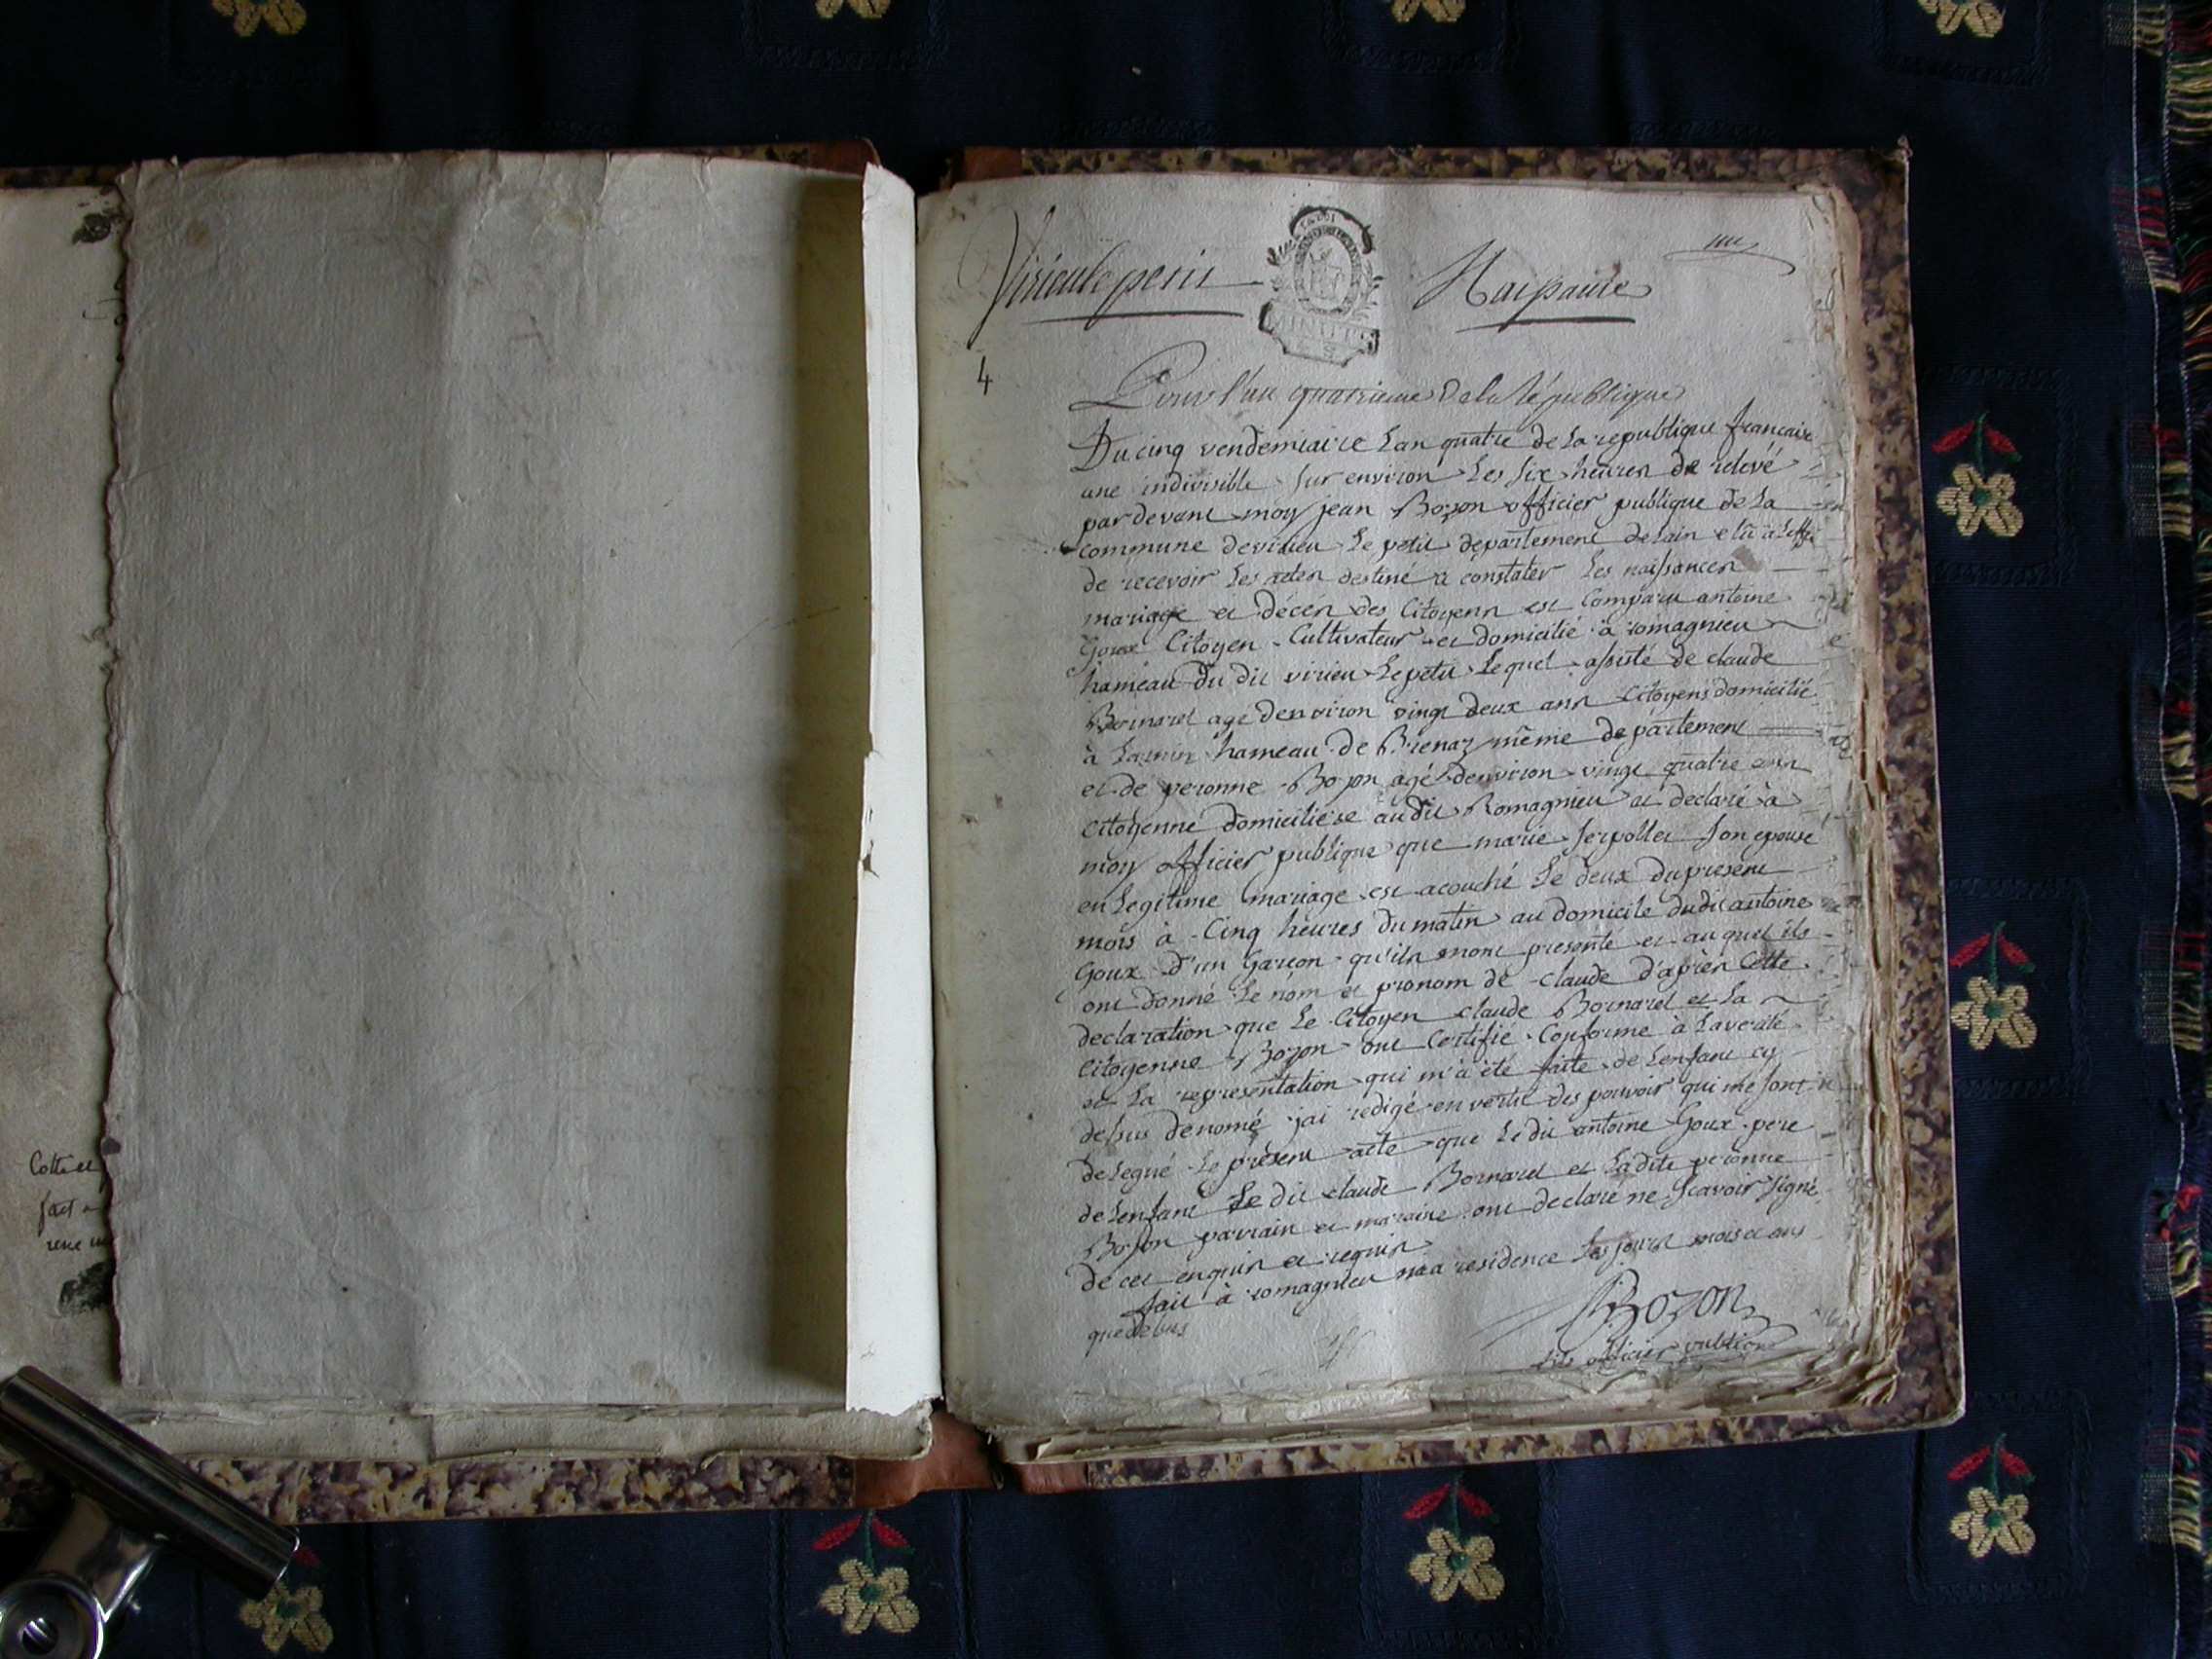 Virieu le petit
Naissance
4
Pour l'an quatrieme De la République
Du cinq vendemiaire Lan quatre de La republique francaise
une indivisible sur environ Les six heures de relevé
pardevant moy jean Bozon officier publique de La
commune devirieu Le petit département delain elû à Leffe
de recevoir Les actes destiné a constater Les naissances
mariage et décés des Citoyens est Comparu antoine
Goux Citoyen Cultivateur et domicilié à romagnieu
hameau du dit virieu Lepetit Lequel assisté de claude
Bornarel agé denviron vingt deux ans Citoyens domicilié
à hameau de Brenaz même département
et de peronne Bozon agé denviron vingt quatre ans
Citoyenne domiciliée audit Romagnieu at declaré à
moy officier publique que marie serpollet son epouse
en Legitime mariage est acouché Le deux dupresent
mois à Cinq heures du matin au domicile dudit antoine
Goux d'un Garcon qu'ils mont presenté et auquel ils
ont donné Le nom et pronom de claude d'après Cette
declaration que Le Citoyen claude Bornarel et La
Citoyenne Bozon ont Certifié Conforme à Laverité
et La representation qui m'a été faite de Lenfant cy
desus denomé jai redigé en vertu des pouvoir qui me sont
delegué Le présent acte que Le dit antoine Goux pere
de Lenfant Le dit claude Bornarel et Ladite peronne
Bozon parrain et maraine ont declaré ne scavoir signé
de cet enquis et requis
fait à romagnieu ma residence Les jours mois et ans
que desus
Bozon
officier publique
Cotte et